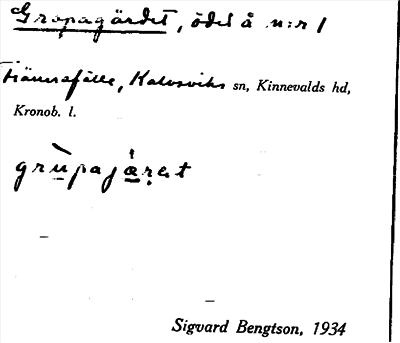 Gropagärdet, ödet å n:r 1
Tjännafälle, Kalvsviks sn, Kinnevalds hd,
Kronob. l.
grùpajæ̀ṛet
Sigvard Bengtson, 1934